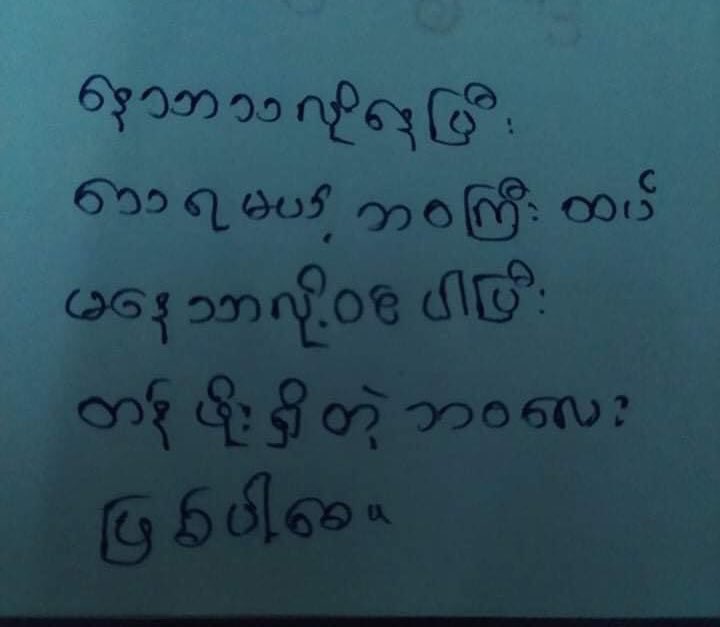 နေသာသာလို့နေပြီး
သေရမယ့် ဘဝကြီး ထပ်
မနေသာလို့ဝင်ပါပြီး
တန်ဖိုးရှိတဲ့ ဘဝလေး
ဖြစ်ပါစေ။